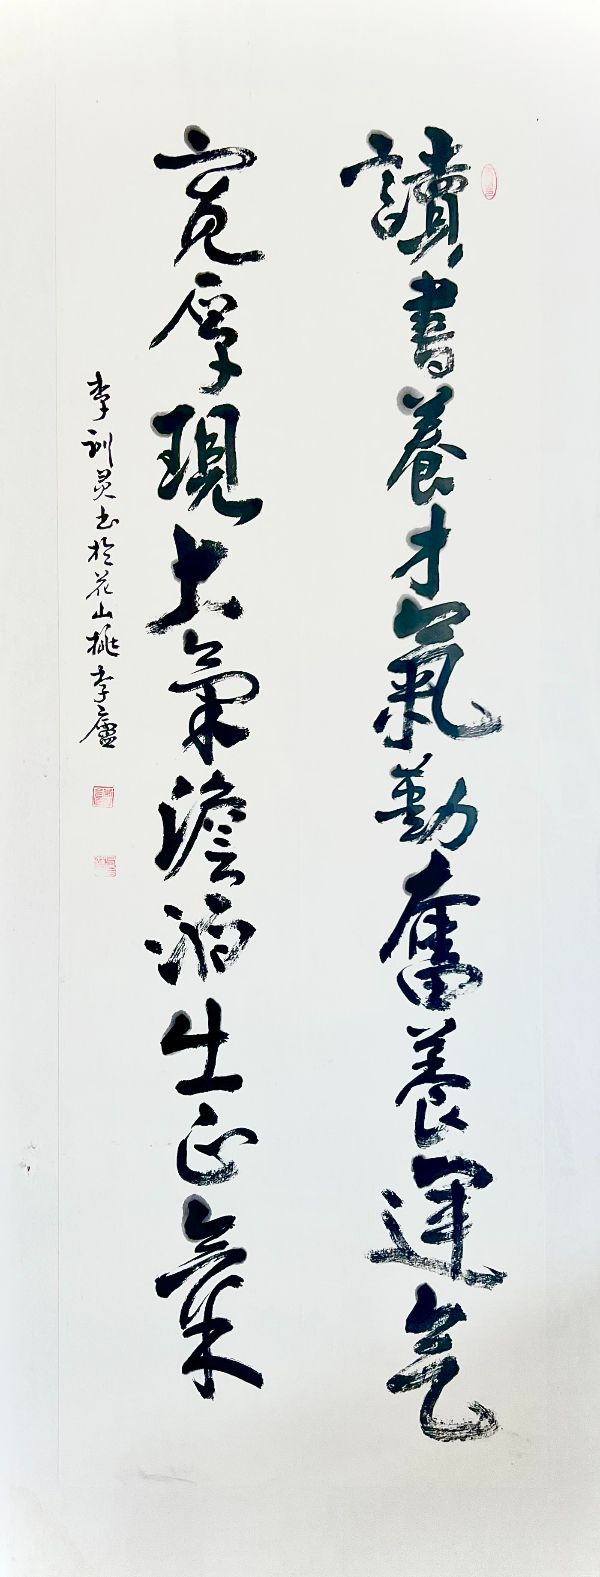 讀書養才氣勤奮養運气
宽厚現大氣澹泊生正氣
李訓灵书於花山桃李廬